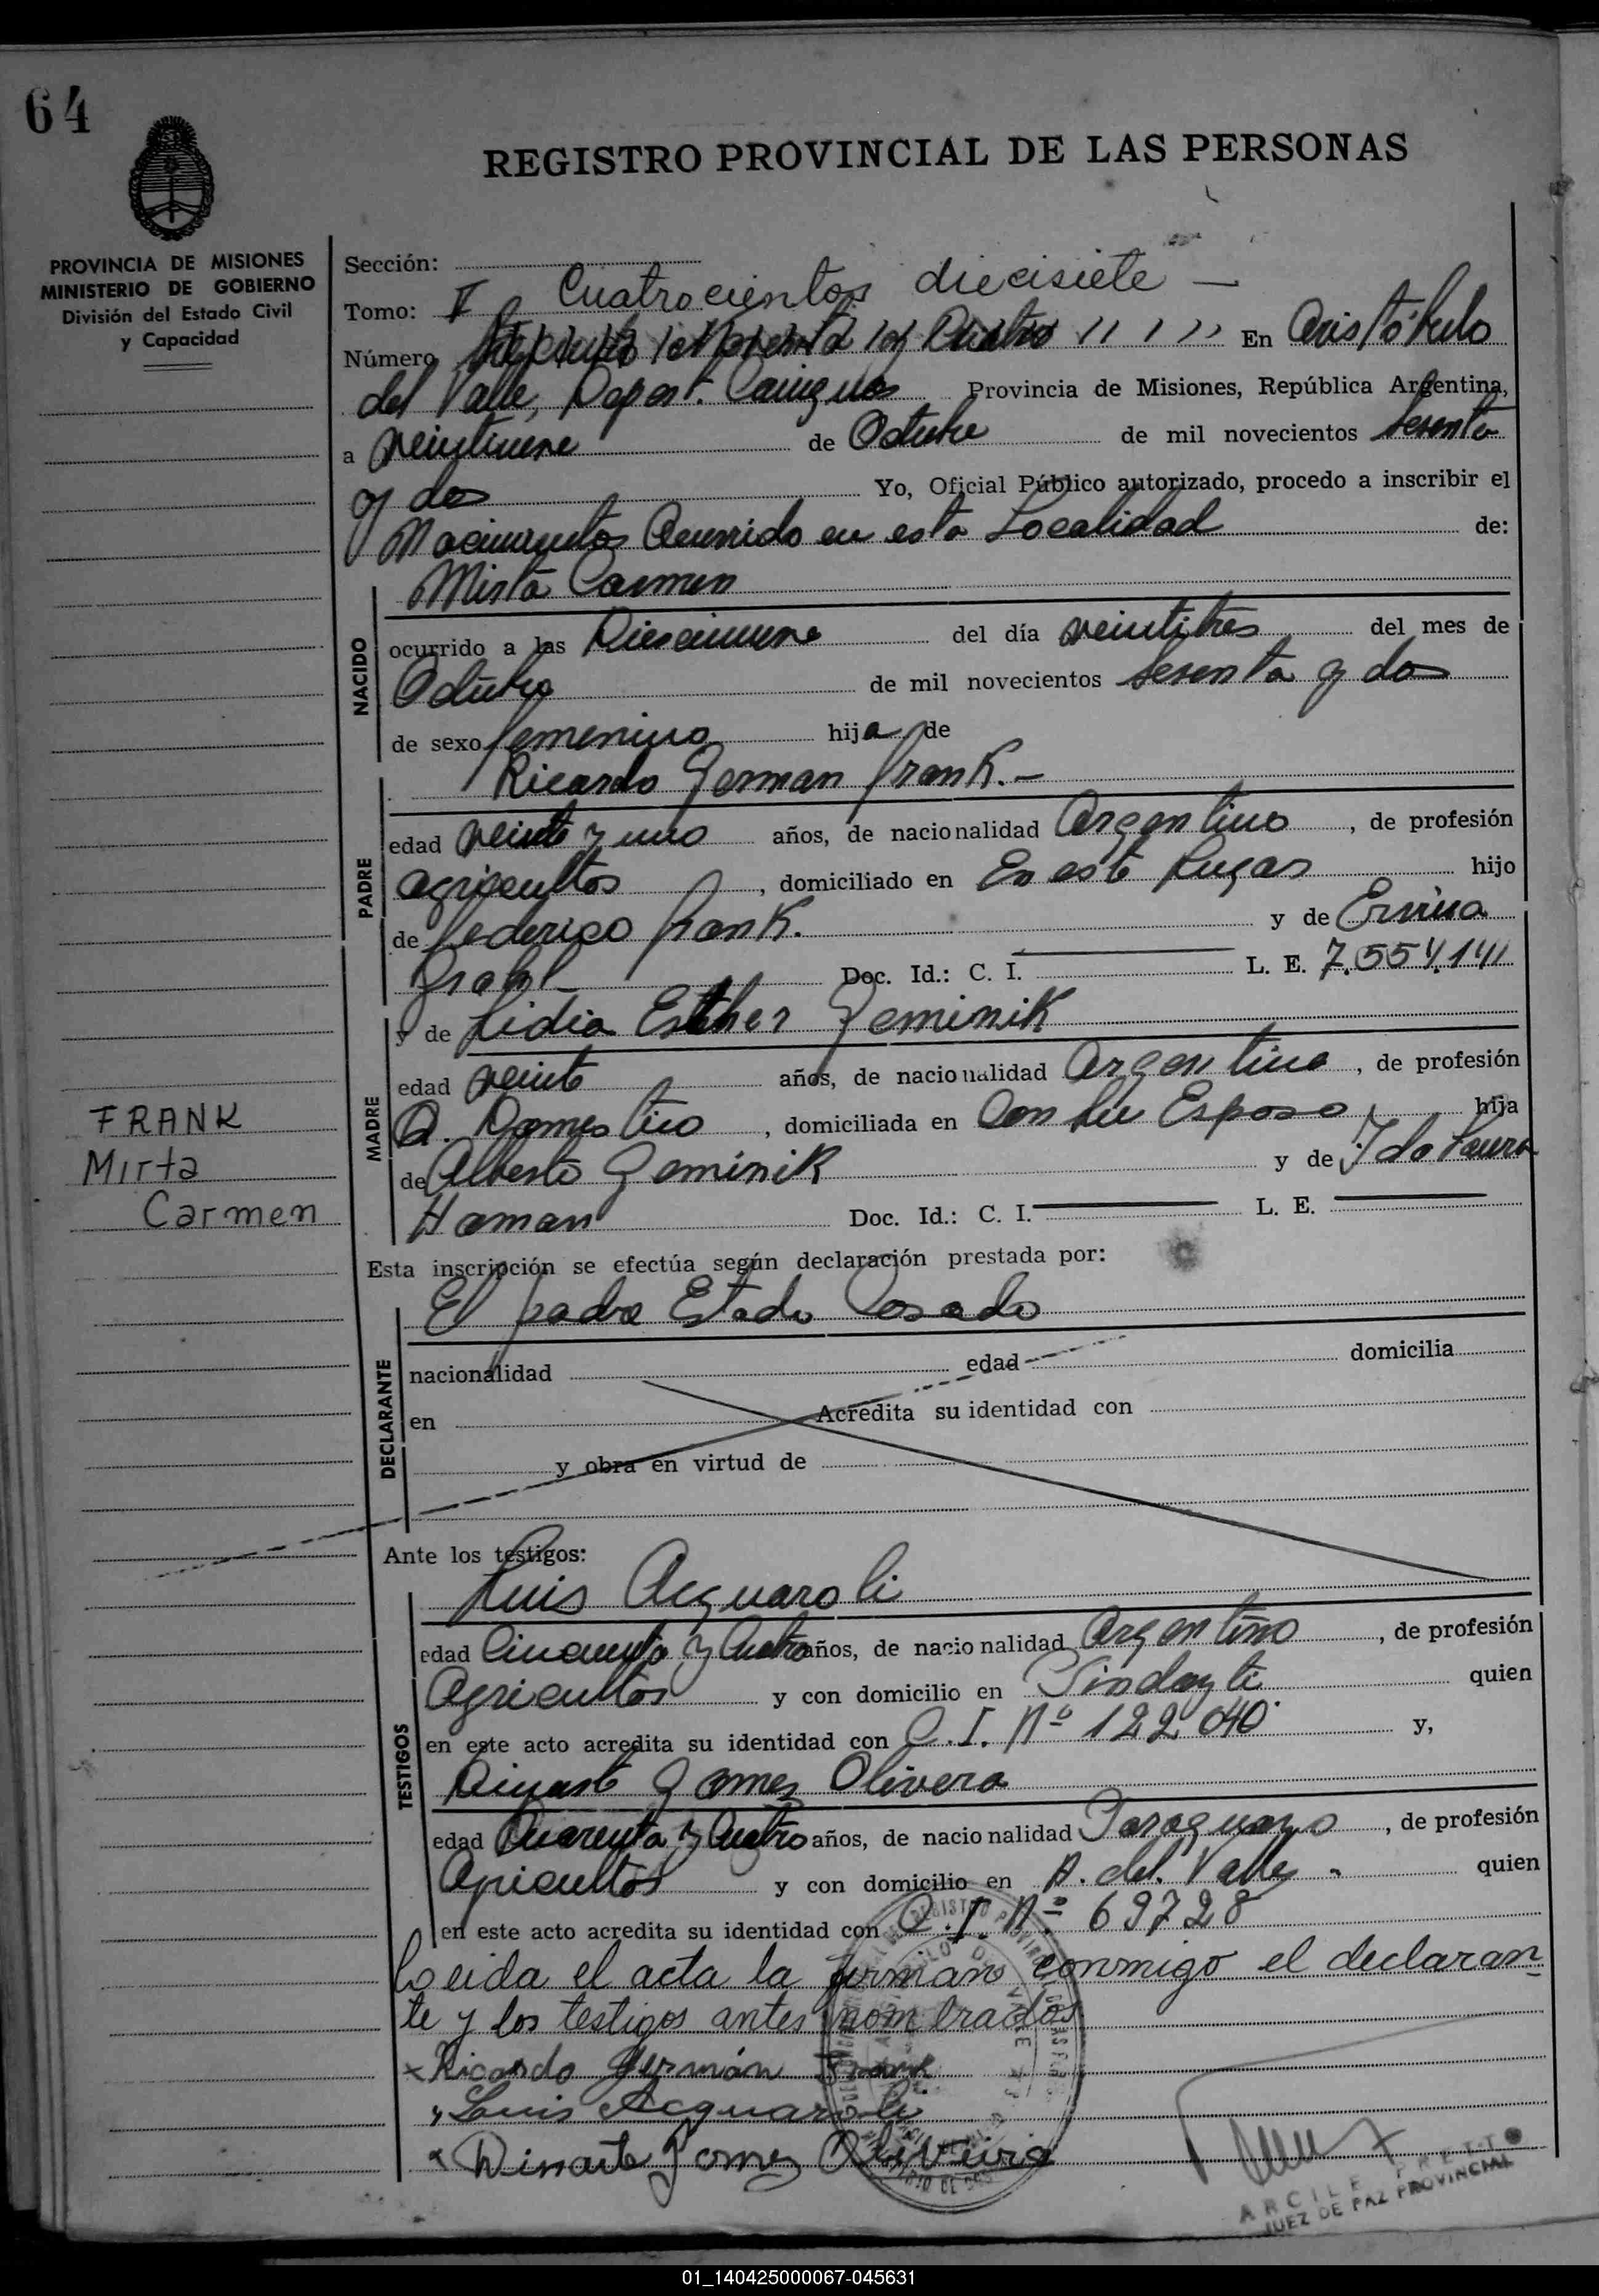 64
REGISTRO PROVINCIAL DE LAS PERSONAS
PROVINCIA DE MISIONES
MINISTERIO DE GOBIERNO
División del Estado Civil
y Capacidad
Sección:
Tomo: II Cuatrocientos diecisiete —
Número En Aristóbulo
del Valle, Depart. Cainguas Provincia de Misiones, República Argentina,
a veintinueve de Octubre de mil novecientos sesenta
y dos Yo, Oficial Público autorizado, procedo a inscribir el
Nacimiento Ocurrido en esta Localidad de:
Mirta Carmen
NACIDO
ocurrido a las Diecinueve del día veintitres del mes de
Octubre de mil novecientos sesenta y dos
de sexo femenino hija de
Ricardo German Frank.-
PADRE
edad veinte y uno años, de nacionalidad Argentino, de profesión
agricultor, domiciliado en En este Lugar hijo
de Federico Frank. y de Ervina
Grahl Doc. Id.: C. I. L. E. 7.554.141
MADRE
y de Lidia Esther Geminik
edad veinte años, de nacionalidad Argentina, de profesión
Q. Domestico, domiciliada en Con su Esposo, hija
de Alberto Geminik y de Ida Laura
Haman Doc. Id.: C. I. L. E.
FRANK
Mirta
Carmen
Esta inscripción se efectúa según declaración prestada por:
El padre Estado Casado
DECLARANTE
nacionalidad edad domicilia
en Acredita su identidad con
y obra en virtud de
Ante los testigos:
Luis Acquaroli
TESTIGOS
edad Cincuenta y Cuatro años, de nacionalidad Argentino, de profesión
Agricultor y con domicilio en Pindayti quien
en este acto acredita su identidad con C.I. Nº 122.040. y,
Dinarte Gomes Olivera
edad Cuarenta y Cuatro años, de nacionalidad Paraguayo, de profesión
Agricultor y con domicilio en A. del Valle - quien
en este acto acredita su identidad con C.I. Nº 69728
Leida el acta la firman conmigo el declaran-
te y los testigos antes nombrados
x Ricardo Germán Frank
" Luis Acquaroli
x Dinarte Gomez Oliveira
ARCILE PRETTO
JUEZ DE PAZ PROVINCIAL
01_140425000067-045631